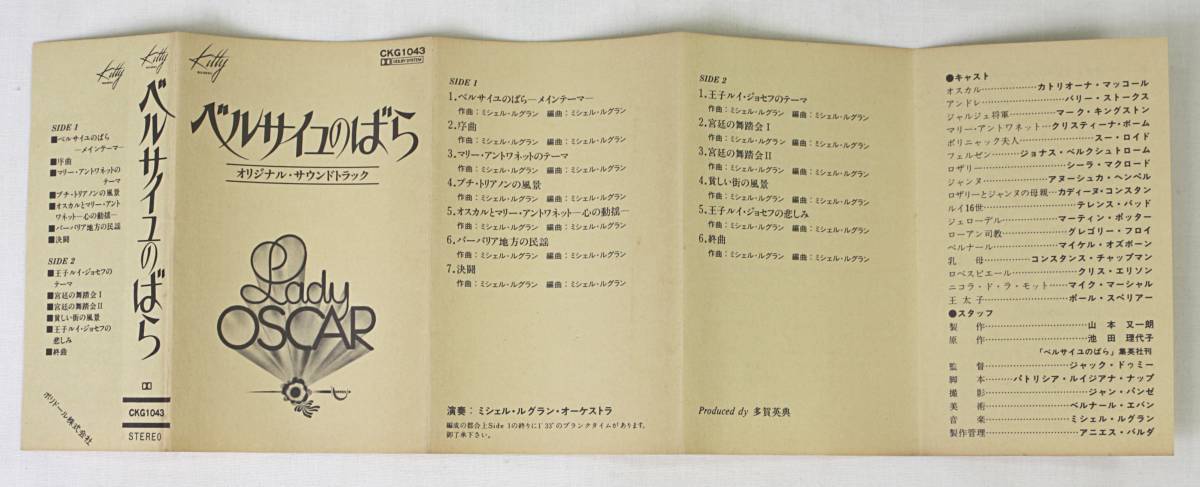 Kitty
SIDE 1
■ベルサイユのばら
―メインテーマ―
■序曲
■マリー・アントワネットの
テーマ
■プチ・トリアノンの風景
■オスカルとマリー・アント
ワネット―心の動揺―
■バーバリア地方の民謡
■決闘
SIDE 2
■王子ルイ・ジョセフの
テーマ
■宮廷の舞踏会I
■宮廷の舞踏会II
■貧しい街の風景
■王子ルイ・ジョセフの
悲しみ
■終曲
ポリドール株式会社
Kitty
ベルサイユのばら
CKG1043
STEREO
Kitty
CKG1043
DOLBY SYSTEM
ベルサイユのばら
オリジナル・サウンドトラック
Lady
OSCAR
SIDE 1
1.ベルサイユのばら―メインテーマ―
作曲：ミシェル・ルグラン 編曲：ミシェル・ルグラン
2.序曲
作曲：ミシェル・ルグラン 編曲：ミシェル・ルグラン
3.マリー・アントワネットのテーマ
作曲：ミシェル・ルグラン 編曲：ミシェル・ルグラン
4.プチ・トリアノンの風景
作曲：ミシェル・ルグラン 編曲：ミシェル・ルグラン
5.オスカルとマリー・アントワネット―心の動揺―
作曲：ミシェル・ルグラン 編曲：ミシェル・ルグラン
6.バーバリア地方の民謡
作曲：ミシェル・ルグラン 編曲：ミシェル・ルグラン
7.決闘
作曲：ミシェル・ルグラン 編曲：ミシェル・ルグラン
演奏：ミシェル・ルグラン・オーケストラ
編成の都合上Side 1の終りに1′33″のブランクタイムがあります。
御了承下さい。
SIDE 2
1.王子ルイ・ジョセフのテーマ
作曲：ミシェル・ルグラン 編曲：ミシェル・ルグラン
2.宮廷の舞踏会I
作曲：ミシェル・ルグラン 編曲：ミシェル・ルグラン
3.宮廷の舞踏会II
作曲：ミシェル・ルグラン 編曲：ミシェル・ルグラン
4.貧しい街の風景
作曲：ミシェル・ルグラン 編曲：ミシェル・ルグラン
5.王子ルイ・ジョセフの悲しみ
作曲：ミシェル・ルグラン 編曲：ミシェル・ルグラン
6.終曲
作曲：ミシェル・ルグラン 編曲：ミシェル・ルグラン
Produced by 多賀英典
●キャスト
オスカル……カトリオーナ・マッコール
アンドレ……バリー・ストークス
ジャルジェ将軍……マーク・キングストン
マリー・アントワネット…クリスティーナ・ボーム
ポリニャック夫人……スー・ロイド
フェルゼン……ジョナス・ベルクシュトローム
ロザリー……シーラ・マクロード
ジャンヌ……アヌーシュカ・ヘンペル
ロザリーとジャンヌの母親…カディーヌ・コンスタン
ルイ16世……テレンス・バッド
ジェローデル……マーティン・ポッター
ローアン司教……グレゴリー・フロイ
ベルナール……マイケル・オズボーン
乳母……コンスタンス・チャップマン
ロベスピエール……クリス・エリソン
ニコラ・ド・ラ・モット……マイク・マーシャル
王太子……ポール・スペリアー
●スタッフ
製作……山本又一朗
原作……池田理代子
「ベルサイユのばら」集英社刊
監督……ジャック・ドゥミー
脚本……パトリシア・ルイジアナ・ナップ
撮影……ジャン・パンゼ
美術……ベルナール・エバン
音楽……ミシェル・ルグラン
製作管理……アニエス・バルダ